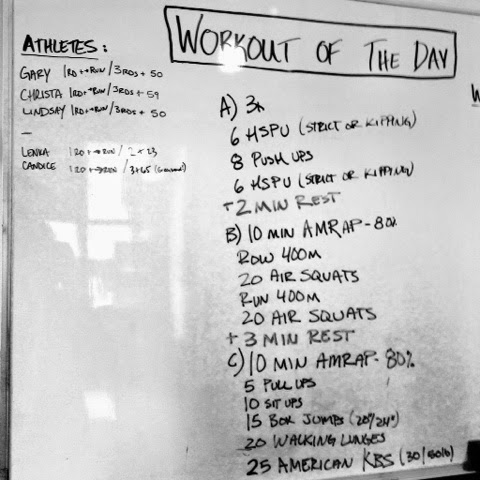 ATHLETES:
GARY 1RD+→RUN/3RDS+50
CHRISTA 1RD+→RUN/3RDS+59
LINDSAY 1RD+→RUN/3RDS+50
—
LENKA 1RD+→RUN/2+23
CANDICE 1RD+→RUN/3+65
WORKOUT OF THE DAY
A) 3x
6 HSPU (STRICT OR KIPPING)
8 PUSH UPS
6 HSPU (STRICT OR KIPPING)
+2 MIN REST
B) 10 MIN AMRAP-80%
ROW 400M
20 AIR SQUATS
RUN 400M
20 AIR SQUATS
+ 3 MIN REST
C) 10 MIN AMRAP-80%
5 PULL UPS
10 SIT UPS
15 BOX JUMPS (20"/24")
20 WALKING LUNGES
25 AMERICAN KBS (30/50lb)
W